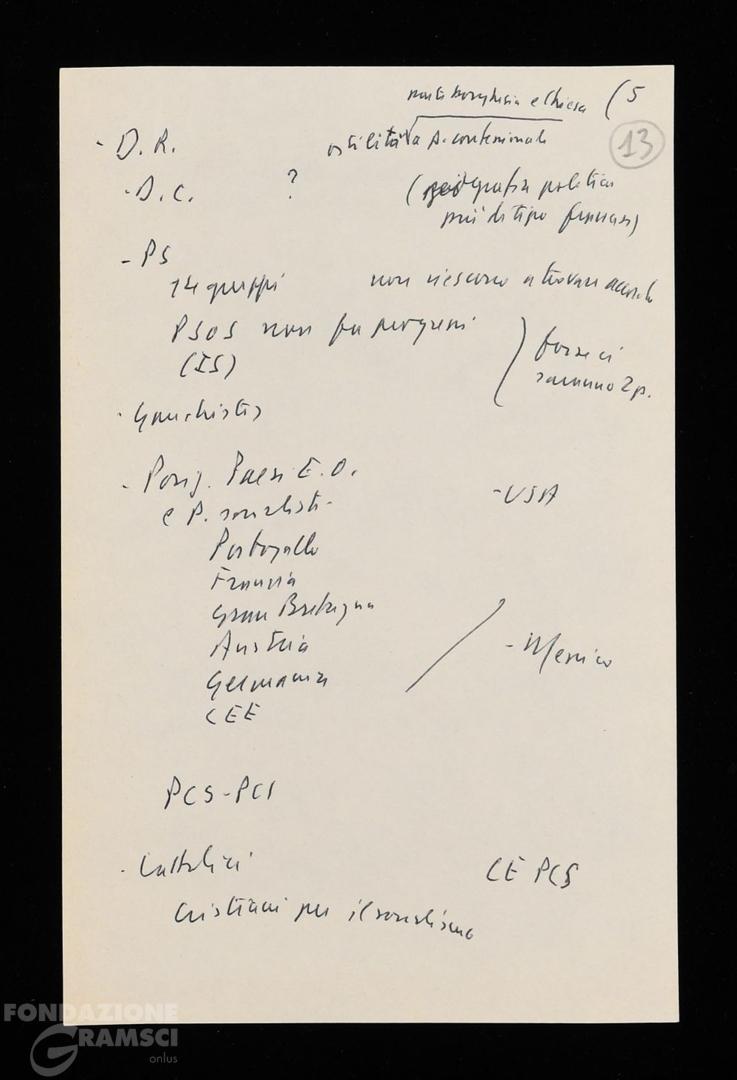 e Chiesa (5
13
- D.R. ostilità a p. confessionale
- D.C. ? ( geografia politica
più di tipo francese)
- PS
14 gruppi non riescono a trovare accordo
PSOS non fa progressi
(IS)
forse ci
saranno 2 p.
- Gauchistes
- Posiz. Paesi E.O.
e P. socialisti - USA
Portogallo
Francia
Gran Bretagna
Austria - Messico
Germania
CEE
PCS-PCI
- Cattolici CE PCS
Cristiani per il socialismo
FONDAZIONE
GRAMSCI
onlus